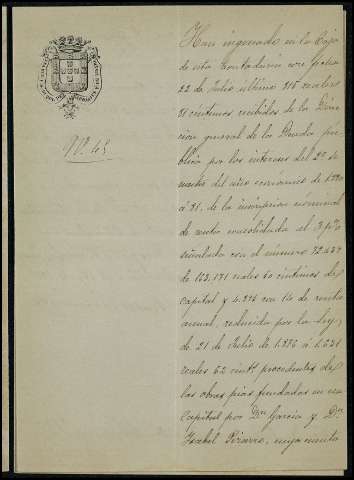 Nº. 45
Han ingresado en la Caja
de esta Contaduria con fecha
22 de Julio ultimo 815 reales
81 centimos recibidos de la Direc
cion general de la Deuda pú
blica por los intereses del 2º se
mestre del año económico de 1.890
á 91, de la inscripcion nominal
de renta consolidada al 3 p%
señalada con el número 72.437
de 163.171 reales 60 centimos de
capital y 4.895 con 14 de renta
anual, reducida por la Ley
de 21 de Julio de 1.876 á 1.631
reales 62 centˢ procedentes de
las obras pias fundadas en esa
Capital por Dⁿ García y Dª
Isabel Pizarro, cuya cuenta